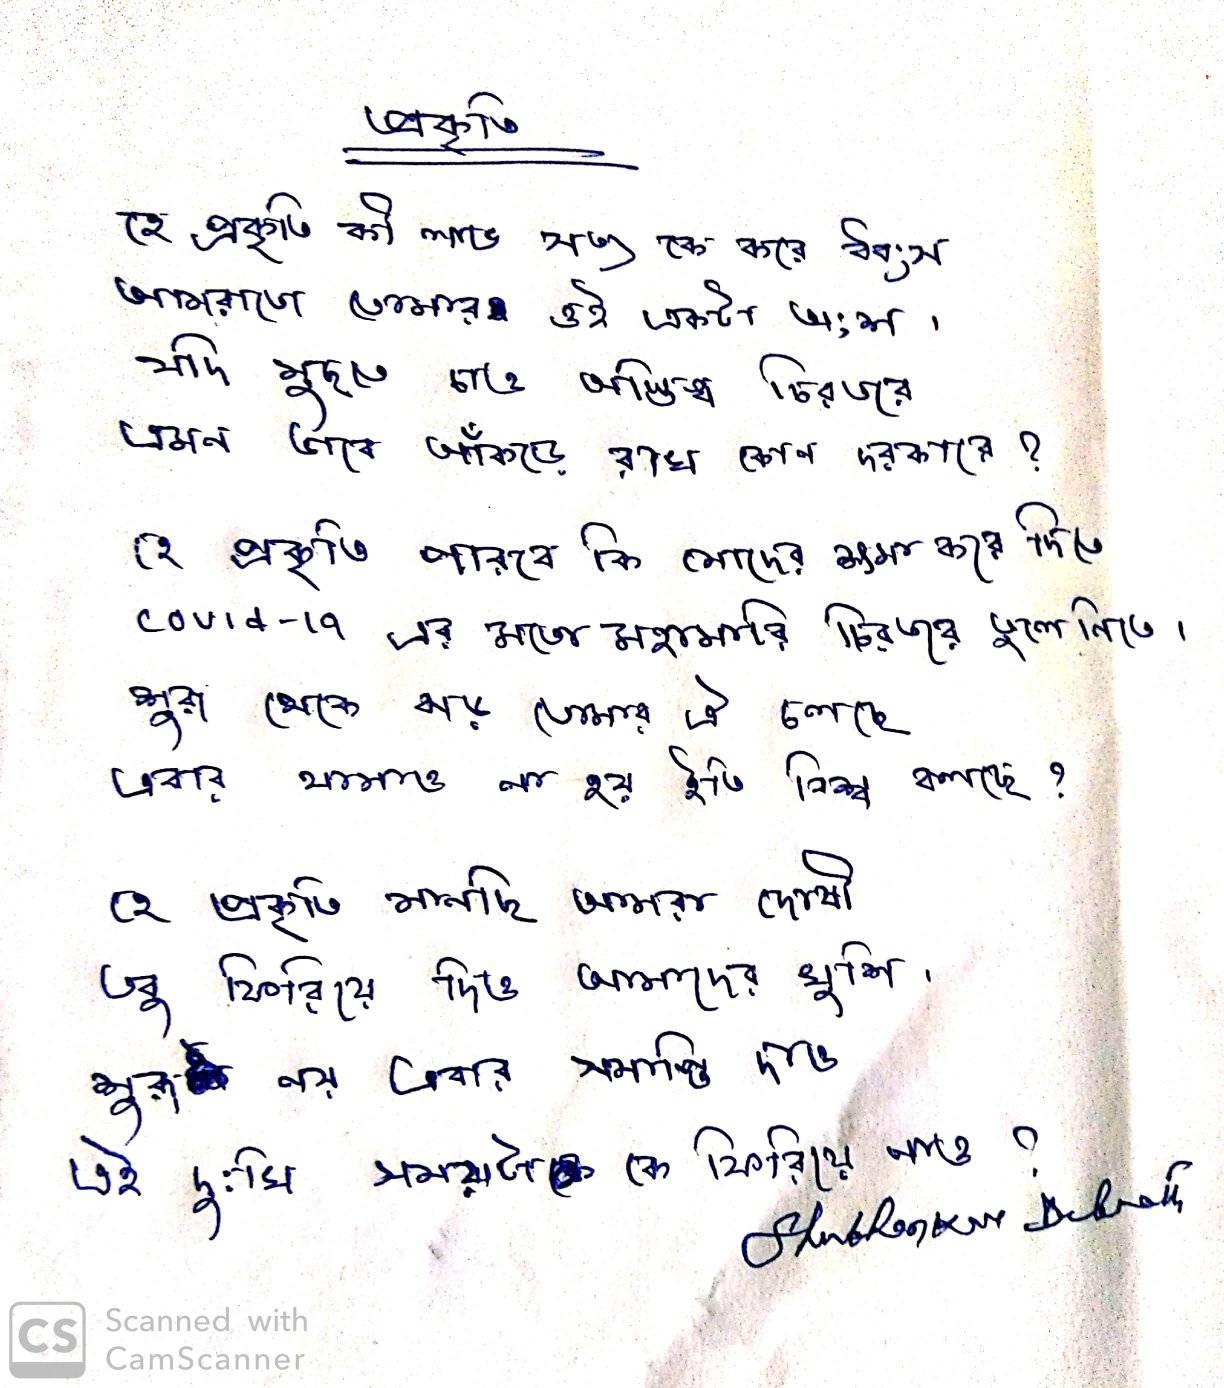 প্রকৃতি
হে প্রকৃতি কী লাভ সত্য কে করে ধ্বংস
আমরাতো তোমার ওই একটা অংশ ।
যদি মুছতে চাও অস্তিত্ব চিরতরে
এমন ভাবে আঁকড়ে রাখ কোন দরকারে ?
হে প্রকৃতি পারবে কি মোদের ক্ষমা করে দিতে
COVID-19 এর মতো মহামারি চিরতরে তুলে নিতে ।
শুরু থেকে ঝড় তোমার ঐ চলছে
এবার থামাও না হয় ইতি বিশ্ব বলছে ?
হে প্রকৃতি মানছি আমরা দোষী
তবু ফিরিয়ে দিও আমাদের খুশি ।
শুরু নয় এবার সমাপ্তি দাও
এই দুঃখি সময়টা কে ফিরিয়ে নাও ?
Shubhankar Debnath
CS Scanned with
CamScanner